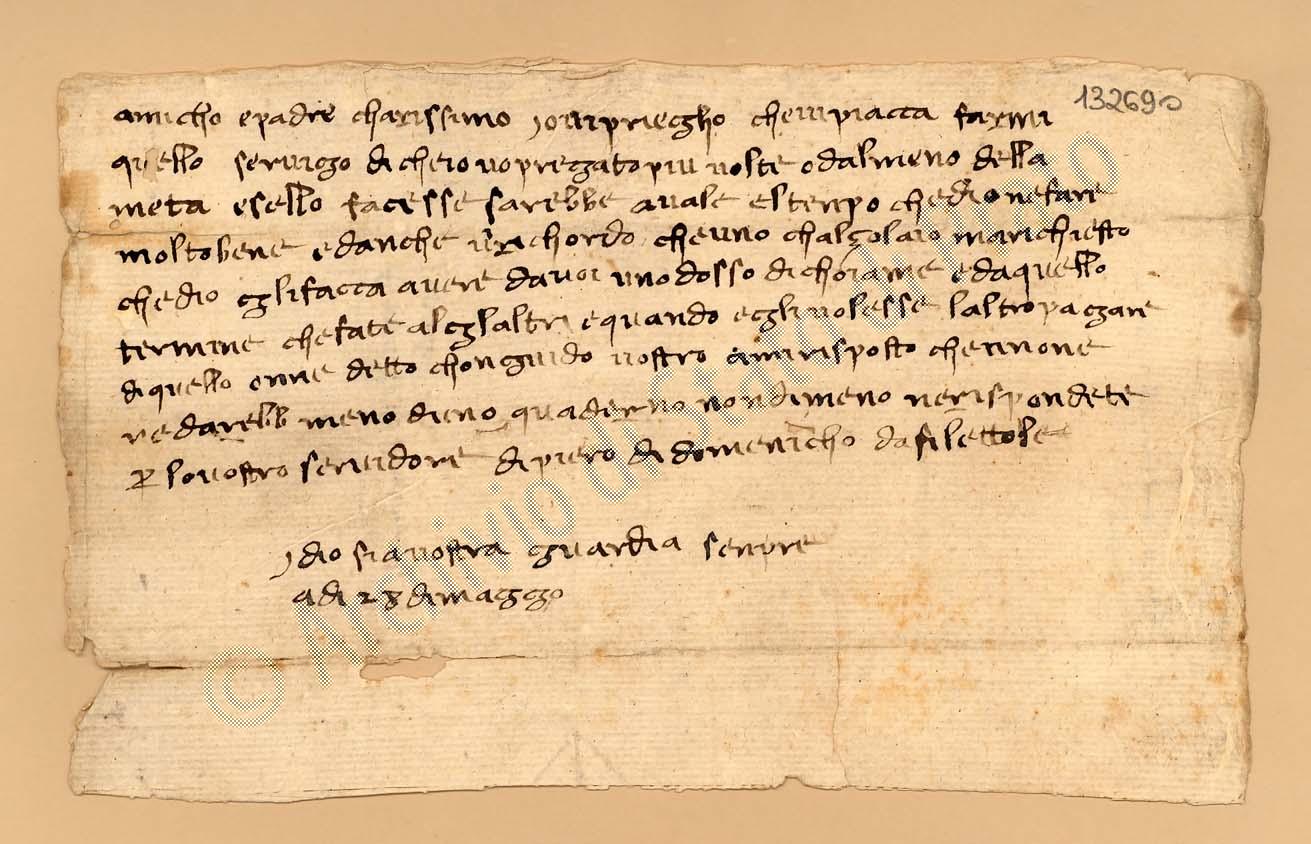 132690
amicho e padre charissimo io vi priegho che vi piacca farmi
quello servigo di che io vo pregato piu volte o dalmeno della
meta e sello facesse sarebbe avale el tenpo che dio ne fare
molto bene ed anche vi richordo che uno chalzolaio marichiesto
chedio gli facca avere da voi uno dosso di choiame e da quello
termine che fate algl altri e quando egli volesse laltro pagare
di quello onne detto chon guido vostro a mi risposto che
re darebb meno di eno quaderno nondimeno ne rispondete
p lo vostro servidore di piero di domenicho da filettole
idio sia vostra guardia senpre
adi 28 di maggo
© Archivio di Stato di Prato